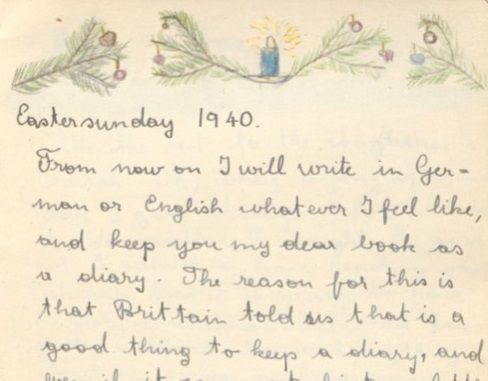 Eastersunday 1940.
From now on I will write in Ger=
man or English what ever I feel like,
and keep you my dear book as
a diary. The reason for this is
that Brittain told us that is a
good thing to keep a diary, and
even if it